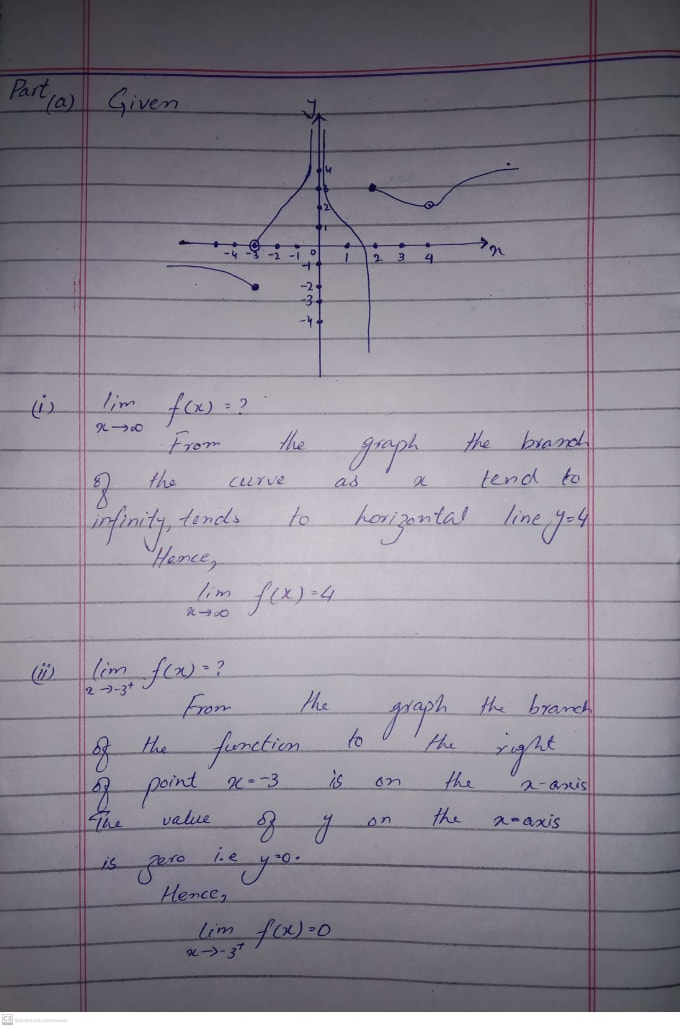 Part (a) Given
y
4
3
2
1
-4 -3 -2 -1 0 1 2 3 4 x
-1
-2
-3
-4
(i) lim f(x) = ?
x→∞
From the graph the branch
of the curve as x tend to
infinity, tends to horizontal line y=4
Hence,
lim f(x)=4
x→∞
(ii) lim f(x) = ?
x→-3⁺
From the graph the branch
of the function to the right
of point x=-3 is on the x-axis
The value of y on the x-axis
is zero i.e y=0.
Hence,
lim f(x)=0
x→-3⁺
CS